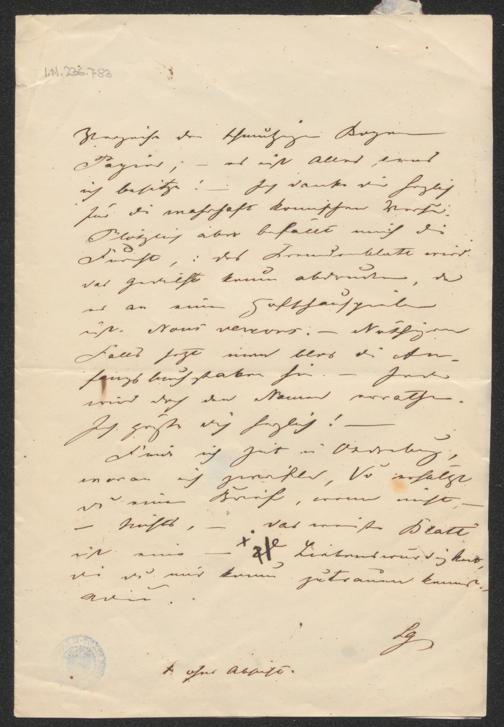 I.N. 236.783
Verzeihe den schmutzigen Bogen
Papier, – es ist Alles was
ich besitze! – Ich danke dir herzlich
für die wahrhaft komischen Verse.
Plötzlich aber befällt mich die
Furcht, : das Fremdenblatt wird
das Gedicht kaum abdrucken, da
es an einen Hofschauspieler
ist. Nous verrons. – Nöthigen
Falls setzt man blos die An-
fangsbuchstaben hin. – Jeder
wird doch den Namen errathen.
Ich grüße dich herzlich! –
Finde ich Zeit in Oedenburg,
woran ich zweifle, so erhältst
du einen Brief, wenn nicht, –
– Nichts, – das weiße Blatt
ist eine – Liebenswürdigkeit,
die du mir kaum zutrauen kannst.
Adieu.
Lg
ohne Absicht.